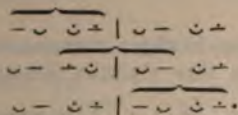 – ⏑ ⏑̇ ∸ | ⏑ – ⏑̇ ∸
⏑ – ∸ ⏑̇ | ⏑ – ⏑̇ ∸
⏑ – ⏑̇ ∸ | – ⏑ ⏑̇ ∸.